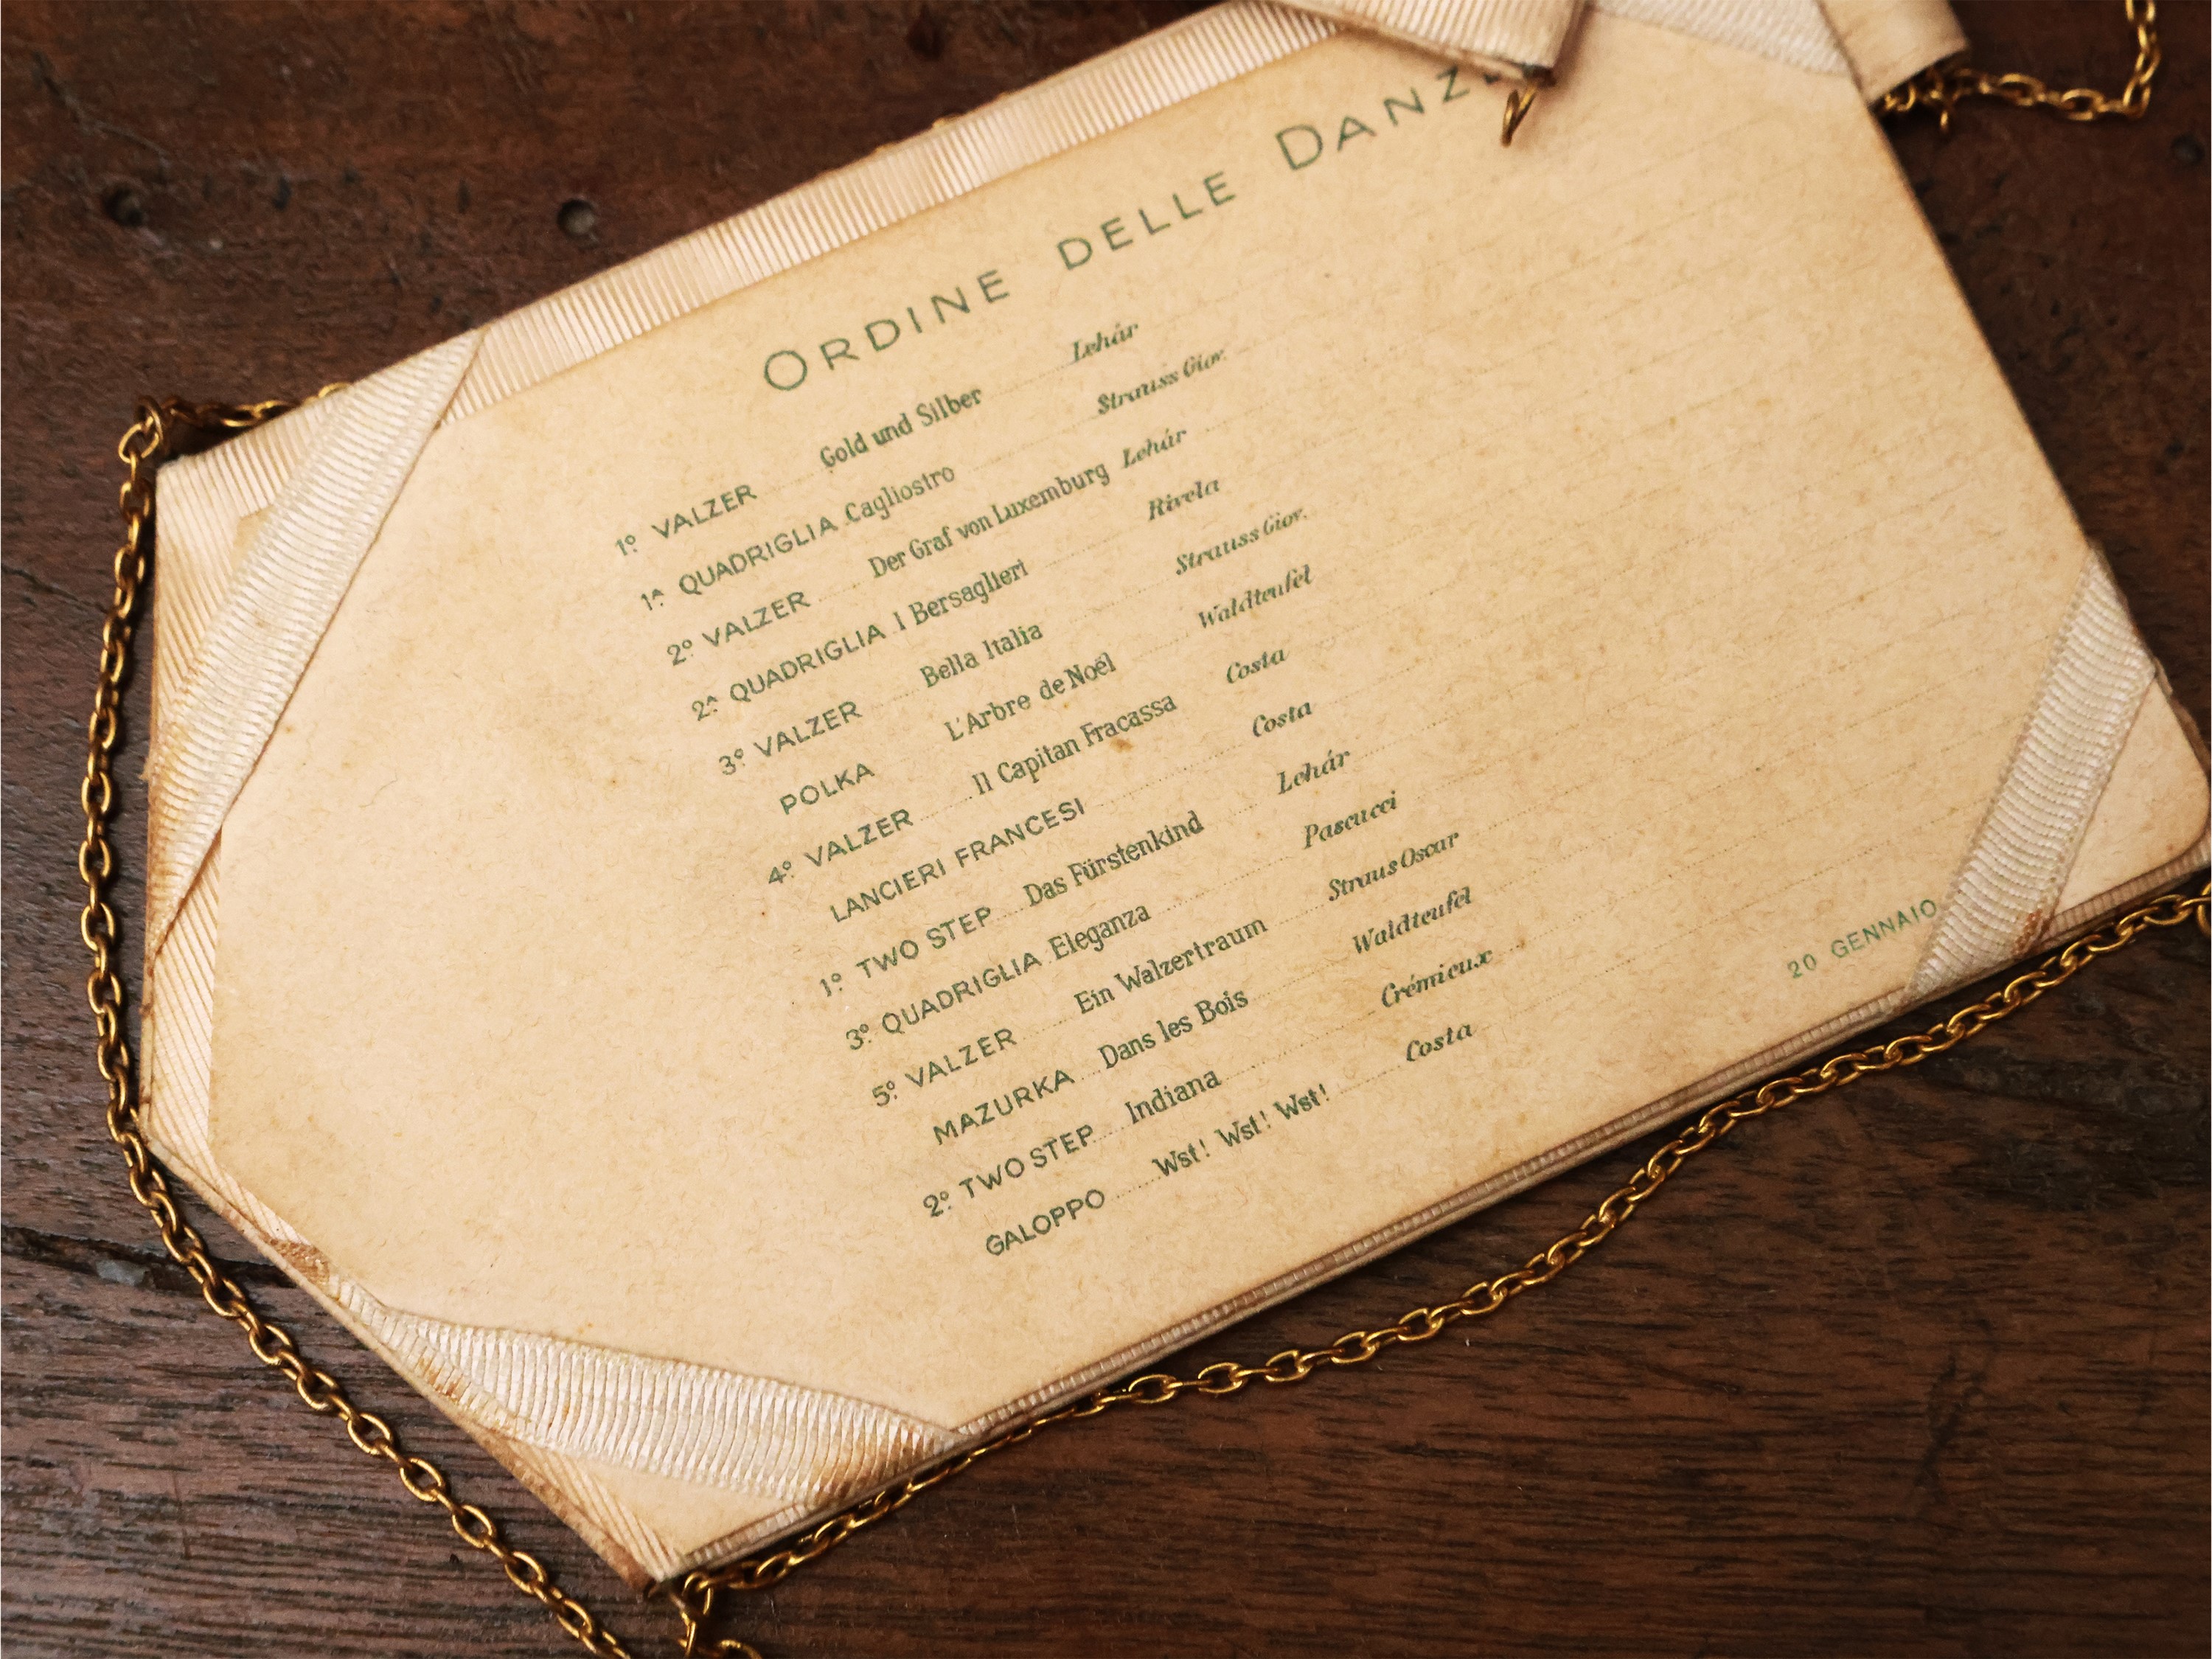 ORDINE DELLE DANZE
1º VALZER Gold und Silber Lehár
1ª QUADRIGLIA Cagliostro Strauss Giov.
2º VALZER Der Graf von Luxemburg Lehár
2ª QUADRIGLIA I Bersaglieri Rivela
3º VALZER Bella Italia Strauss Giov.
POLKA L'Arbre de Noël Waldteufel
4º VALZER Il Capitan Fracassa Costa
LANCIERI FRANCESI Costa
1º TWO STEP Das Fürstenkind Lehár
3º QUADRIGLIA Eleganza Pascucci
5º VALZER Ein Walzertraum Straus Oscar
MAZURKA Dans les Bois Waldteufel
2º TWO STEP Indiana Crémieux
GALOPPO Wst! Wst! Wst! Costa
20 GENNAIO